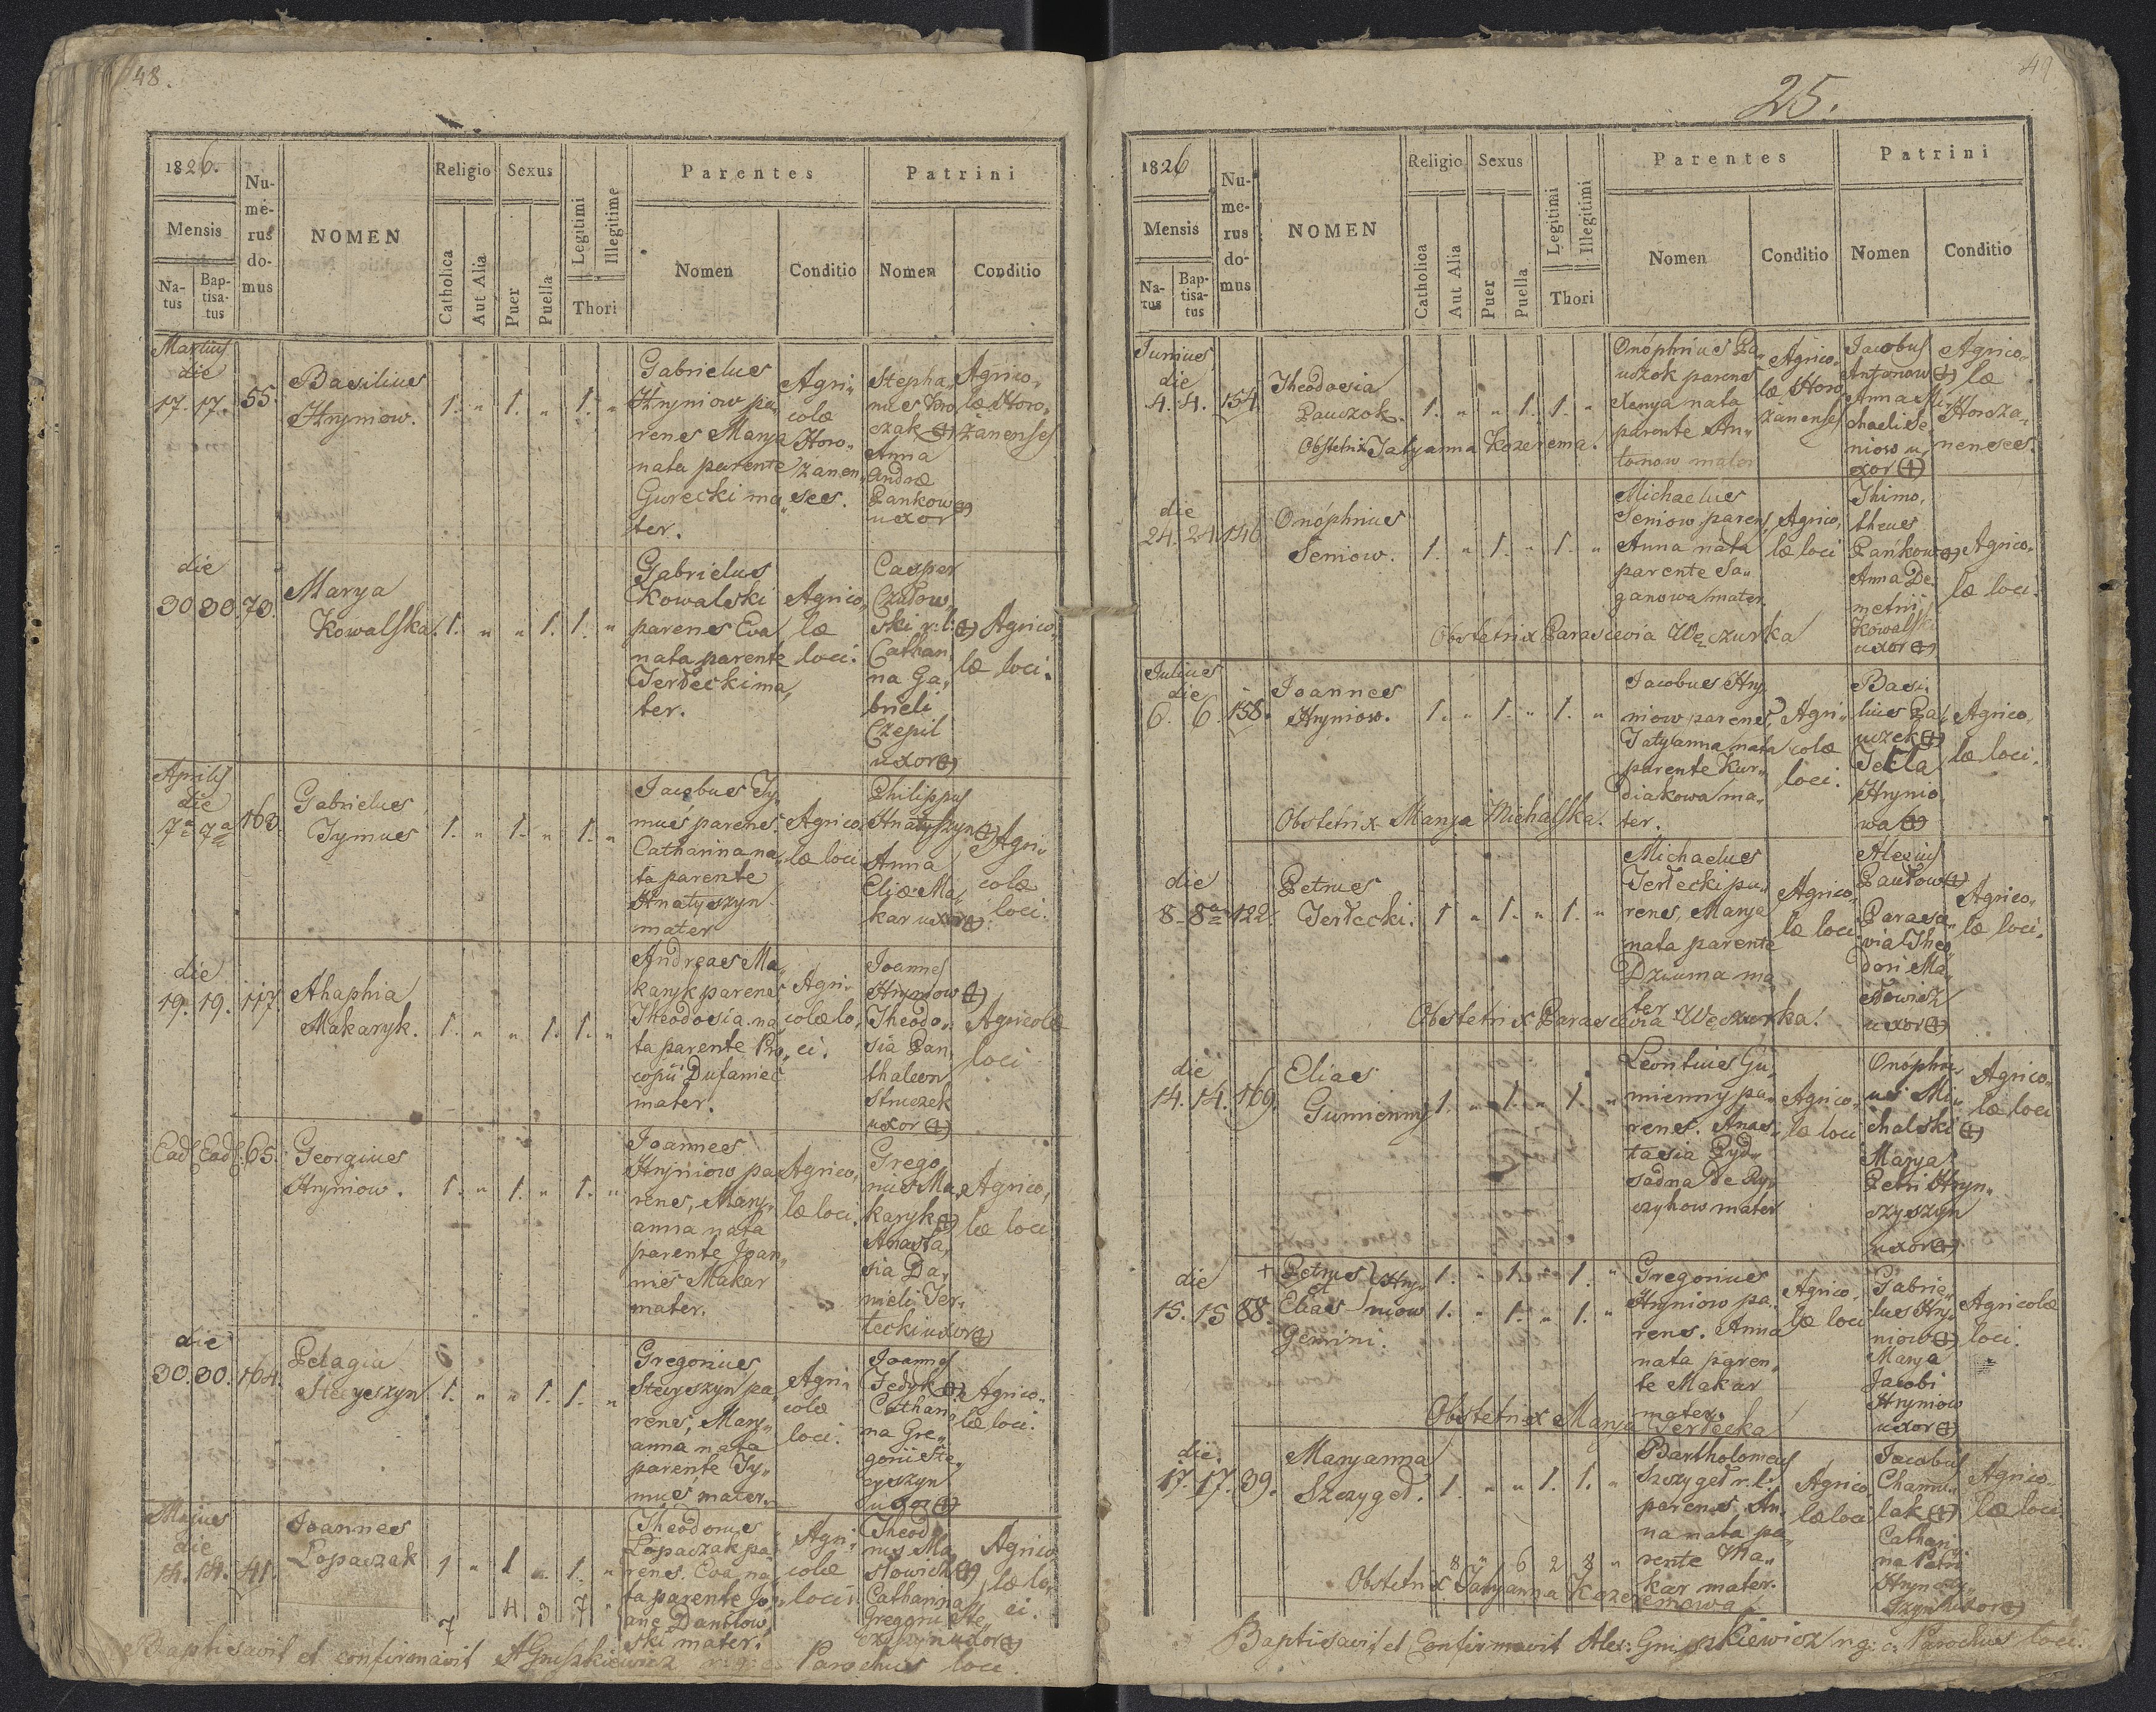 48.
1826.
Mensis
Na-
tus
Bap-
tisa-
tus
Nu-
me-
rus
do-
mus
NOMEN
Religio
Catholica
Aut Alia
Sexus
Puer
Puella
Legitimi
Illegitime
Thori
Parentes
Nomen
Conditio
Patrini
Nomen
Conditio
Martius
die
17. 17. 55.
Basilius
Hryniow.
1. „ 1. „ 1. „
Gabrielus
Hryniow pa„
rens Marya
nata parente
Gurecki ma„
ter.
Agri„
colæ
Horo„
żanen„
ses.
Stepha„
nus
czak (+)
Anna
Andræ
Pankow (+)
uxor
Agrico„
læ Horo„
żanenses
die
30 30. 73.
Marya
Kowalska.
1. „ „ 1. 1. „
Gabrielus
Kowalski
parens Eva
nata parente
Jerłecki ma„
ter.
Agrico„
læ
loci.
Casper
Czułow„
ski r: l: (+)
Cathari
na Ga„
brieli
Czepil
uxor (+)
Agrico„
læ loci.
Aprilis
die
7a 7a 163.
Gabrielus
Tymus
1. „ 1. „ 1. „
Jacobus Ty„
mus parens.
Catharina na„
ta parente
Hnatyszyn
mater
Agrico„
læ loci
Philippus
Hnatyszyn (+)
Anna
Eliæ Ma„
kar uxor (+)
Agri„
colæ
loci.
die
19. 19. 117.
Ahaphia
Makaryk.
1. „ „ 1. 1. „
Andreas Ma„
karyk parens
Theodosia na„
ta parente Pro„
copii Dufaniec
mater.
Agri„
colæ lo„
ci.
Joannes
Hryniow (+)
Theodo„
sia Pan„
thaleon
Struczek
uxor (+)
Agricolæ
loci
Ead. Ead. 65.
Georgius
Hryniow.
1. „ 1. „ 1. „
Joannes
Hryniow pa„
rens, Mary„
anna nata
parente Joan„
nis Makar
mater.
Agrico„
læ loci.
Grego
rius Ma„
karyk (+)
Anasta„
sia Da„
nieli Jer„
łecki uxor (+)
Agrico„
læ loci
die
30. 30. 164.
Pelagia
Stecyszyn
1. „ „ 1. 1. „
Gregorius
Stecyszyn pa„
rens, Mary„
anna nata
parente Ty„
mus mater.
Agri„
colæ
loci.
Joannes
Fedyk (+)
Cathari
na Gre„
gorii Ste„
cyszyn
uxor (+)
Agrico„
læ loci.
Majus
die
14. 14. 41.
Joannes
Łopaczak
1 „ 1 „ 1. „
Theodorus
Łopaczak pa„
rens. Eva na„
ta parente Jo„
ane Daniłow„
ski mater.
Agri„
colæ
loci.
Theodo
rus Ma„
słowicz (+)
Catharina
Gregorii Ste„
czyszyn uxor (+)
Agrico„
læ lo„
ci.
7 4 3 7
Baptisavit et confirmavit A Gnypkiewicz r: g: c: Parochus loci.
49
25.
1826
Mensis
Na-
tus
Bap-
tisa-
tus
Nu-
me-
rus
do-
mus
NOMEN
Religio
Catholica
Aut Alia
Sexus
Puer
Puella
Legitimi
Illegitimi
Thori
Parentes
Nomen
Conditio
Patrini
Nomen
Conditio
Junius
die
4. 4. 154.
Theodosia
Pauszok.
1. „ „ 1. 1. „
Onóphrius Pa„
uszok parens
Xenya nata
parente An„
tonow mater
Agrico„
læ Horo
żanenses
Jacobus
Antonow (+)
Anna Mi„
chaeli Se„
niow u„
xor (+)
Agrico„
læ
Horoża„
nenses.
Obstetrix Tatyanna Kozerema.
die
24. 24. 146
Onóphrius
Seniow.
1. „ 1. „ 1. „
Michaelus
Seniow parens
Anna nata
parente Sa„
ganowa mater.
Agrico„
læ loci
Thimo„
theus
Pańkow (+)
Anna De„
metri
Kowalski
uxor (+)
Agrico„
læ loci.
Obstetrix Parascevia Węczurka
Julius
die
6. 6. 158.
Joannes
Hryniow.
1. „ 1. „ 1. „
Jacobus Hry
niow parens,
Tatyanna nata
parente Kur„
diakowa ma„
ter.
Agri„
colæ
loci.
Basi„
lius Pa„
uszek (+)
Tekla
Hrynio„
wa (+)
Agrico„
læ loci.
Obstetrix Marya Michalska.
die
8. 8a 122.
Petrus
Jerłecki.
1 „ 1. „ 1. „
Michaelus
Jerłecki pa„
rens, Marya
nata parente
Dziuma ma
ter
Agrico„
læ loci.
Alexius
Pawłow (+)
Parasce
via Theo
dori Ma„
słowicz
uxor (+)
Agrico„
læ loci.
Obstetrix Parascevia Węczurka.
die
14. 14. 169.
Elias
Gumienny
1. „ 1. „ 1. „
Leontius Gu„
mienny pa„
rens. Anas„
tasia Pyd„
sadna de Ry„
czyhow mater
Agrico„
læ loci
Onóphri„
us Mi„
chalski (+)
Marya
Petri Hryn„
czyszyn
uxor (+)
Agrico„
læ loci
die
15. 15 88.
+ Petrus
et
Elias
Hry„
niow
Gemini.
1. „ 1. „ 1. „
1. „ 1. „ 1. „
Gregorius
Hryniow pa„
rens. Anna
nata paren„
te Makar
mater.
Agrico„
læ loci
Gabrie„
lus Hry„
niow (+)
Marya
Jacobi
Hryniow
uxor (+)
Agricolæ
loci.
Obstetrix Marya Jerłecka
die
17. 17. 39.
Maryanna
Szczygeł.
1. „ „ 1. 1. „
Bartholomeus
Szczygeł r. l.
parens. An„
na nata pa„
rente Ma„
kar mater.
Agrico„
læ loci
Jacobus
Chamu„
lak (+)
Cathari„
na Petri
uxor (+)
Agrico„
læ loci.
8 „ 6 2 8 „
Obstetrix Tatyanna Kozeremowa
Baptisavit et Confirmavit Alex: Gnypkiewicz r: g: c: Parochus loci.